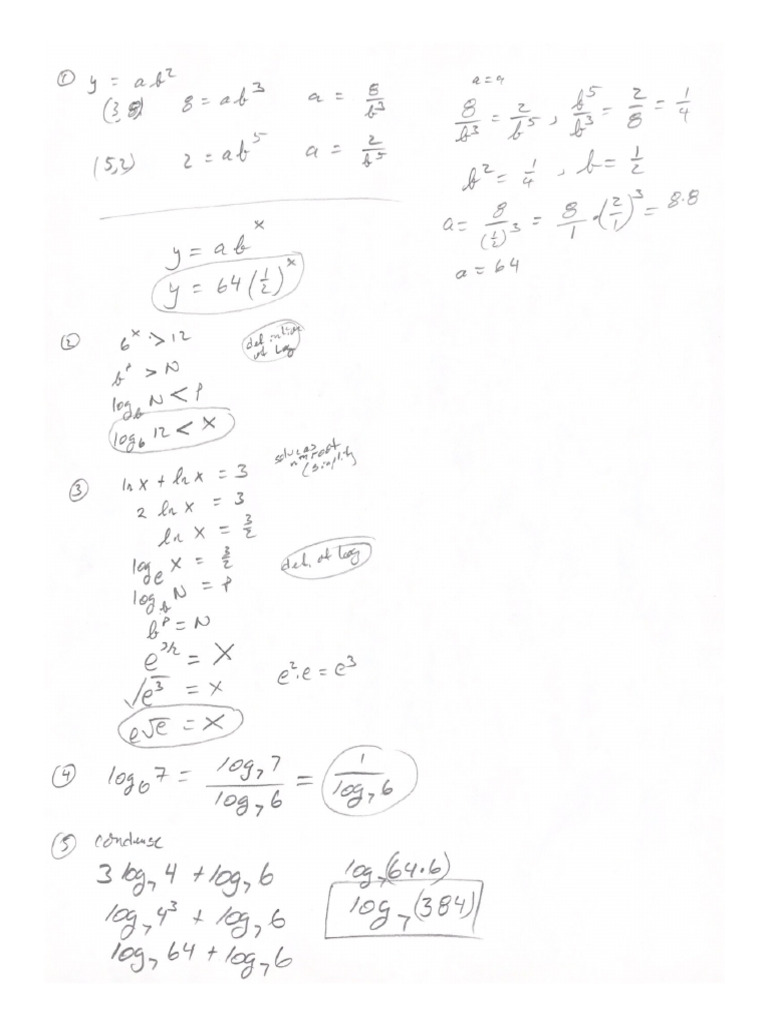 ① y = ab²
(3, 8) 8 = ab³ a = 8/b³
(5,2) 2 = ab⁵ a = 2/b⁵
a = a
8/b³ = 2/b⁵ , b⁵/b³ = 2/8 = 1/4
b² = 1/4 , b = 1/2
a = 8/(1/2)³ = 8/1 · (2/1)³ = 8·8
a = 64
y = ab^x
y = 64(1/2)^x
② 6^x > 12
definition of log
b^p > N
log_b N < P
log₆ 12 < x
③ ln x + ln x = 3
solve as
root
(simplify
2 ln x = 3
ln x = 3/2
log_e x = 3/2
def. of log
log_b N = P
b^p = N
e^3/2 = X
e²·e = e³
√e³ = x
e√e = X
④ log₆ 7 = log₇ 7 / log₇ 6 = 1 / log₇ 6
⑤ condense
3 log₇ 4 + log₇ 6
log₇ 4³ + log₇ 6
log₇ 64 + log₇ 6
log₇(64·6)
log₇(384)